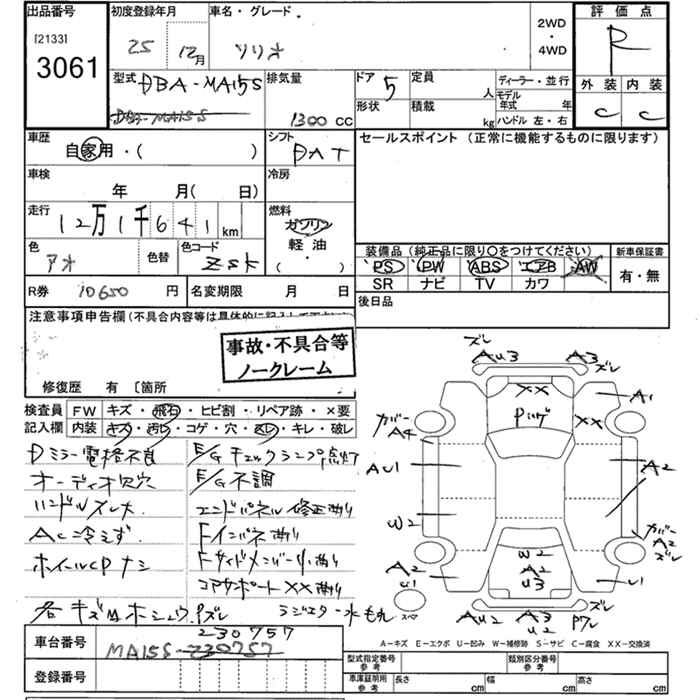 出品番号
[2133]
3061
初度登録年月
25 12月
車名・グレード
ソリオ
2WD
・
4WD
評価点
R
外装 内装
C C
型式 DBA-MA15S
DBA-MA15S
排気量
1300 CC
ドア 5
形状
定員
人
積載
kg
ディーラー・並行
モデル
年式 年
ハンドル 左・右
車歴
自家用・( )
シフト
DAT
セールスポイント (正常に機能するものに限ります)
車検
年 月( 日)
冷房
走行
12万1千641 km
燃料
ガソリン
軽油
( ・ )
色
アオ
色替
色コード
ZSK
装備品 (純正品に限り○をつけてください)
PS PW ABS エアB AW
SR ナビ TV カワ
新車保証書
有・無
R券 10650 円
名変期限 月 日
後日品
注意事項申告欄 (不具合内容等は具体的に記入して下さい)
事故・不具合等
ノークレーム
修復歴 有 〔箇所
検査員
記入欄
FW キズ・飛石・ヒビ割・リペア跡・×要
内装 キズ・汚レ・コゲ・穴・スレ・キレ・破レ
Dミラー電格不良
オーディオ欠穴
ハンドルスレ大
AC冷えず
ホイールCPナシ
E/Gチェックランプ点灯
E/G不調
エンドパネル修正あり
Fインパネあり
Fサイドメンバー小あり
コアサポート××あり
各キズ凹ホシュウ、ズレ
ラジエター水もれ
ズレ
AU3
A3
ズレ
XX
Pハゲ
XX
A1
カバー
A4
AU1
A2
W2
カバー
A2
ズレ
W2
A2
U3
A2
U1
U1
スペア
AU2
A3
U2
ズレ
Pワレ
車台番号
230757
MA15S-230757
登録番号
A－キズ E－エクボ U－凹み W－補修跡 S－サビ C－腐食 XX－交換済
型式指定番号
参考
類別区分番号
参考
車庫証明用
参考
長さ cm
幅 cm
高さ cm